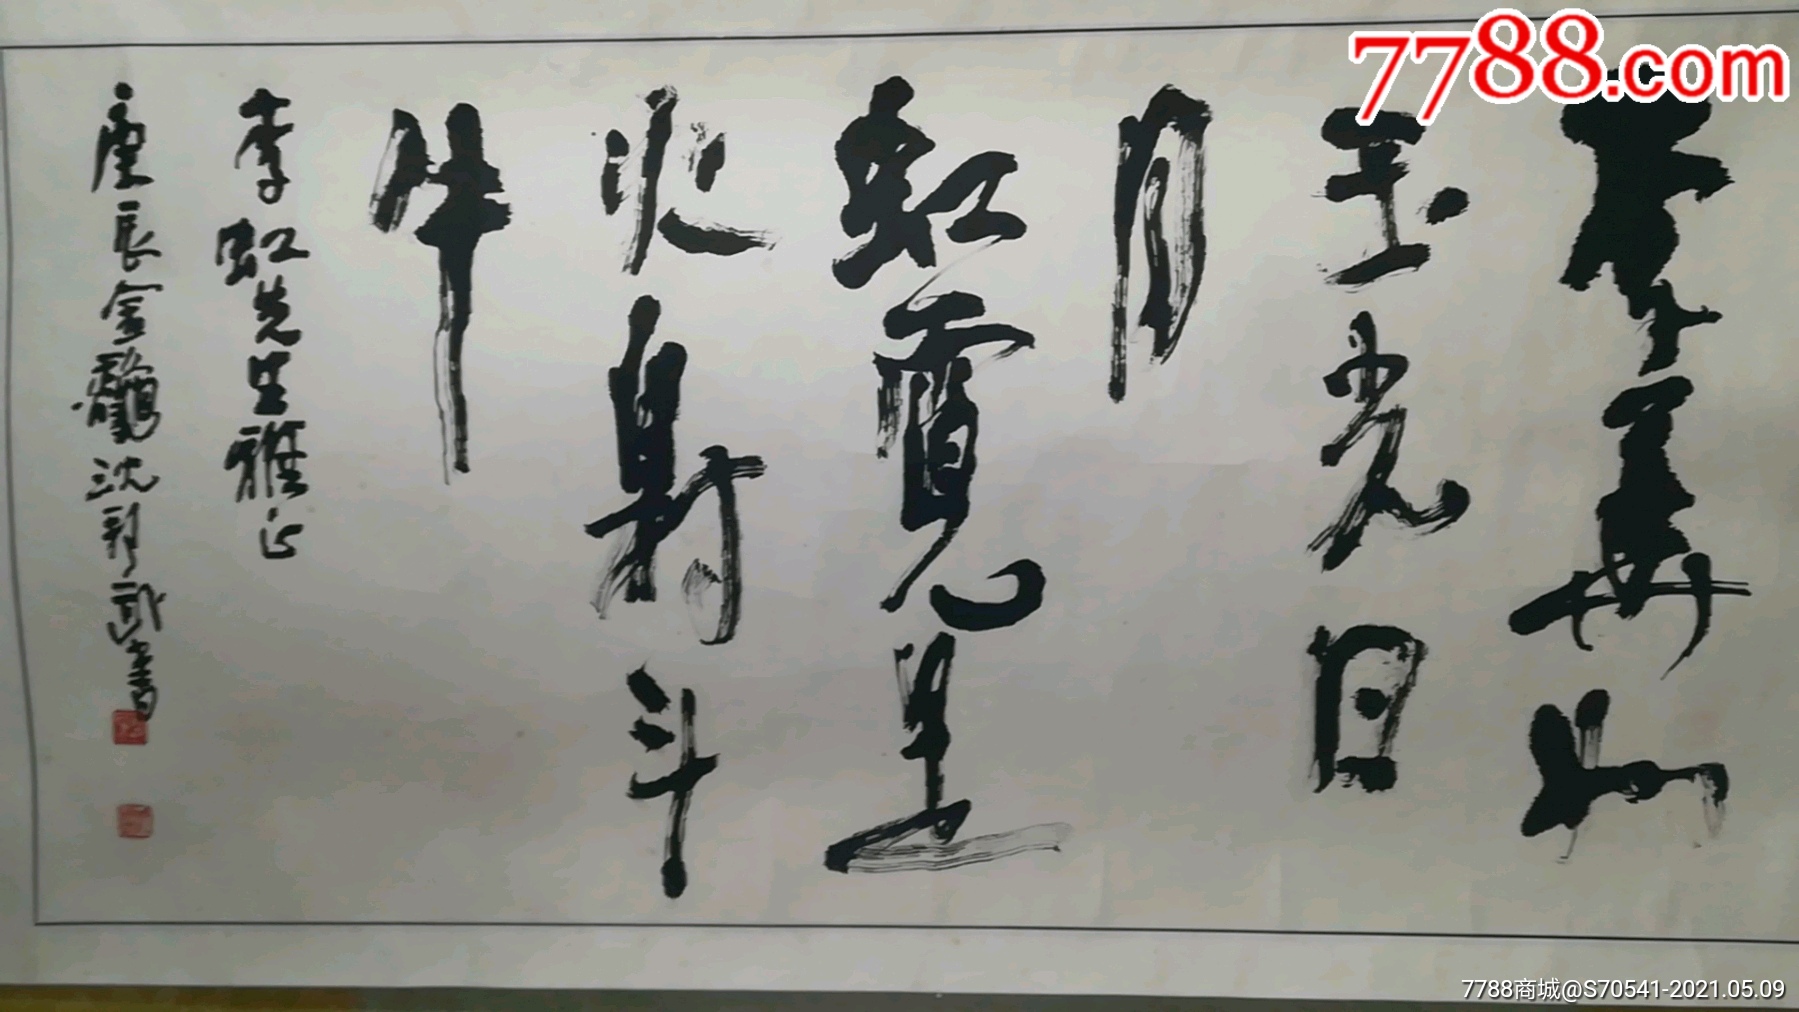 7788.com
李華如
玉光日
月
虹霓生
火射斗
牛
李虹先生雅正
庚辰金龍沈武書
7788商城@S70541-2021.05.09